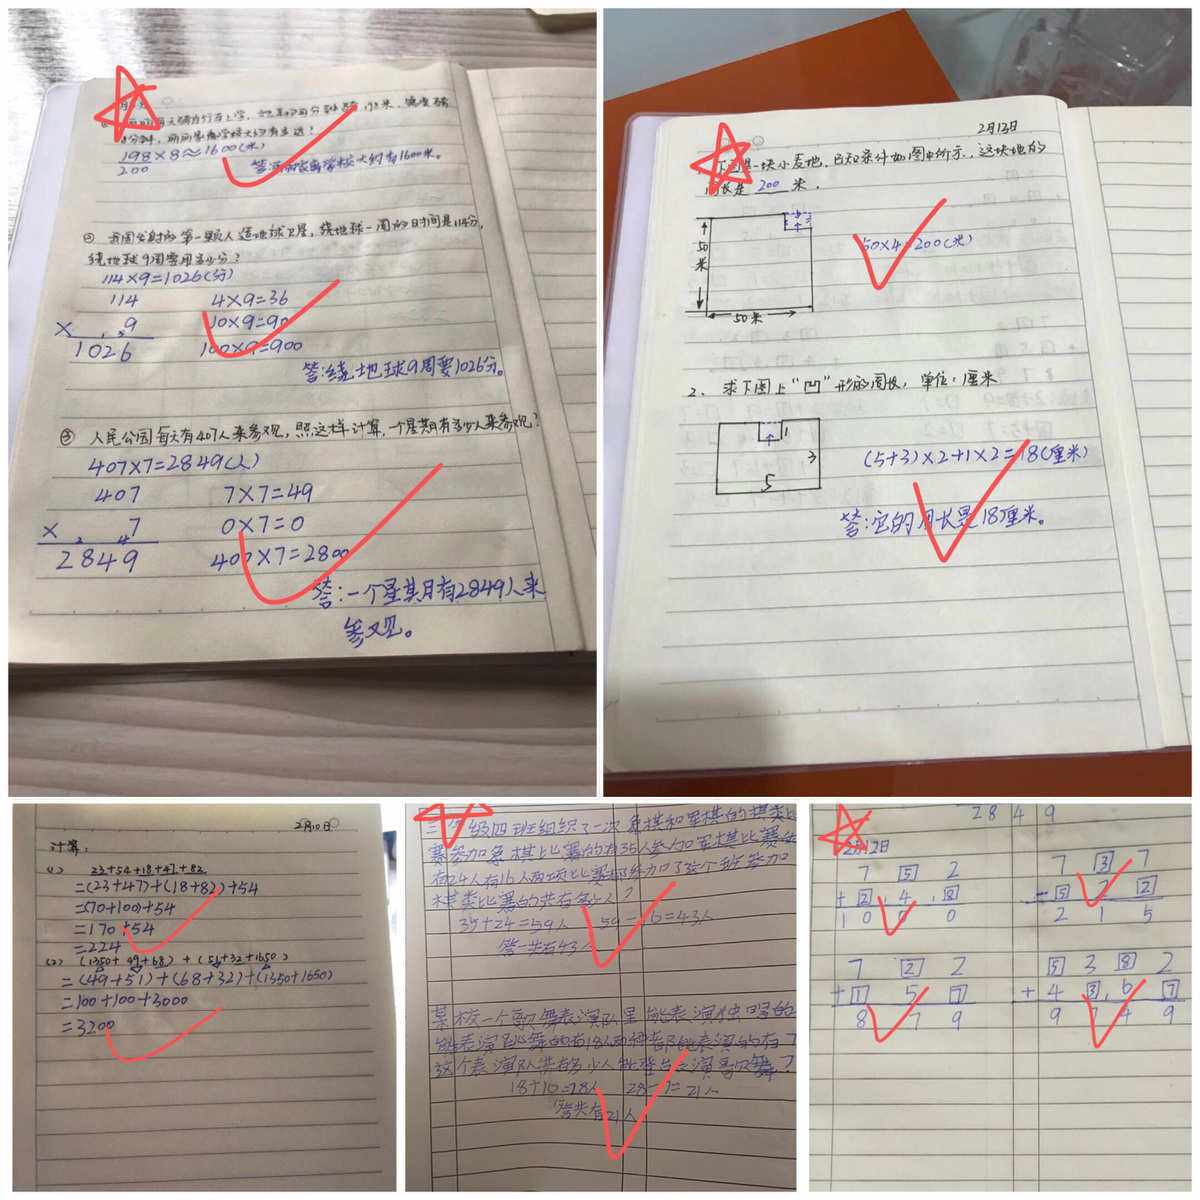 198×8≈1600(米)
200
答:丽丽家离学校大约有1600米。
② 我国发射的第一颗人造地球卫星，绕地球一周的时间是114分，
绕地球9周需用多少分？
114×9=1026(分)
114
4×9=36
× 9
10×9=90
1026
100×9=900
答:绕地球9周要1026分。
③ 人民公园每天有407人来参观，照这样计算，一个星期有多少人来参观？
407×7=2849(人)
407
7×7=49
× 7
0×7=0
2849
400×7=2800
答:一个星期有2849人来
参观。
2月13日
下图是一块小麦地，已知条件如图中所示，这块地的
周长是 200 米．
50米
50×4=200(米)
50米
2、求下图上“凹”形的周长，单位：厘米
1
3
5
(5+3)×2+1×2=18(厘米)
答:它的周长是18厘米。
2月10日
计算：
(1) 23+54+18+47+82
=(23+47)+(18+82)+54
=(70+100)+54
=170+54
=224
(2) (1350+49+68)+(51+32+1650)
=(49+51)+(68+32)+(1350+1650)
=100+100+3000
=3200
三年级四班组织了一次象棋和军棋的棋类比
赛参加象棋比赛的有35人参加军棋比赛的
有24人有16人两项比赛都参加了这个班参加
棋类比赛的共有多少人？
35+24=59人 59-16=43人
答一共有43人
某校一个歌舞表演队里能表演独唱的
能表演跳舞的有18人两种都能表演的有7
这个表演队共有多少人能登台表演歌舞？
18+10=28人 28-7=21人
答共有21人
2849
2月12日
7 5 2
+ 2 4 8
1 0 0 0
7 3 7
2 1 5
7 2 2
+ 1 5 7
8 7 9
5 3 8 2
+ 4 3 6 7
9 7 4 9